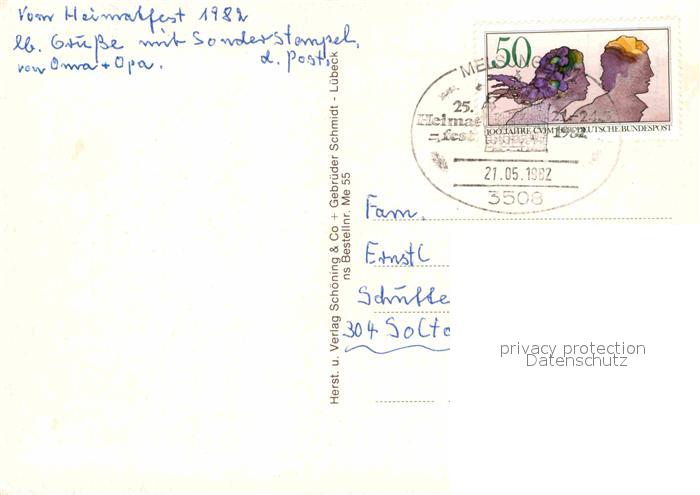 Vom Heimatfest 1982
lb. Grüße mit Sonderstempel
von Oma + Opa. d. Post.
50
100 JAHRE CVJM DEUTSCHE BUNDESPOST
25.
Heimat
fest
1982
21.05.1982
3508
Herst. u. Verlag Schöning & Co + Gebrüder Schmidt - Lübeck
ns Bestellnr. Me 55
Fam.
Ernst
Schütte
304 Solta
privacy protection
Datenschutz